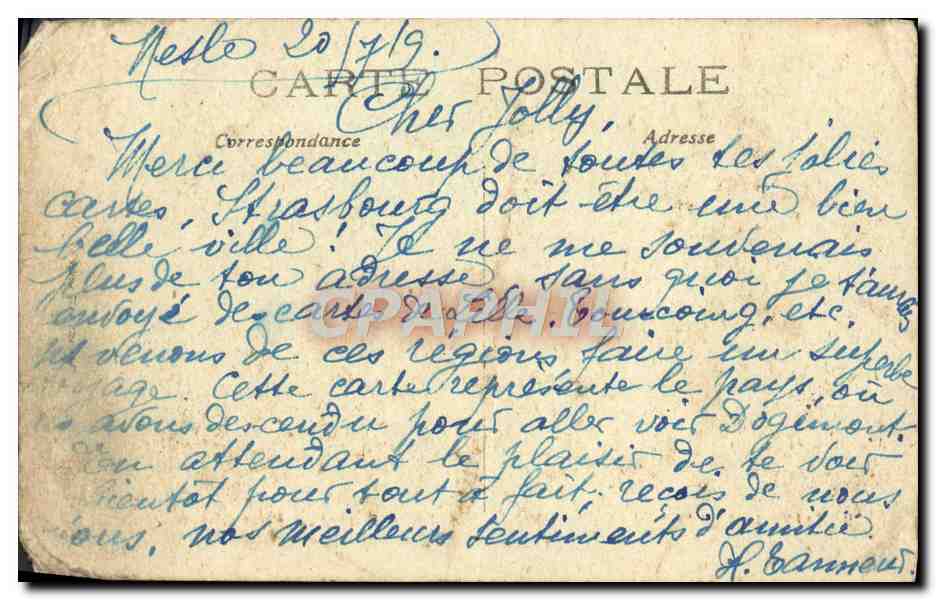 Nesle 20/7/9.
CARTE POSTALE
Cher Jolly,
Correspondance Adresse
Merci beaucoup de toutes tes jolies
cartes. Strasbourg doit être une bien
belle ville ! Je ne me souvenais
plus de ton adresse sans quoi je t'aurais
envoyé des cartes de Lille, Tourcoing, etc.
venons de ces régions faire un superbe
Cette carte représente le pays, où
avons descendu pour aller voir Dogimont.
En attendant le plaisir de te voir
bientôt pour tout à fait, reçois de nous
nos meilleurs sentiments d'amitié
CPAPHIL